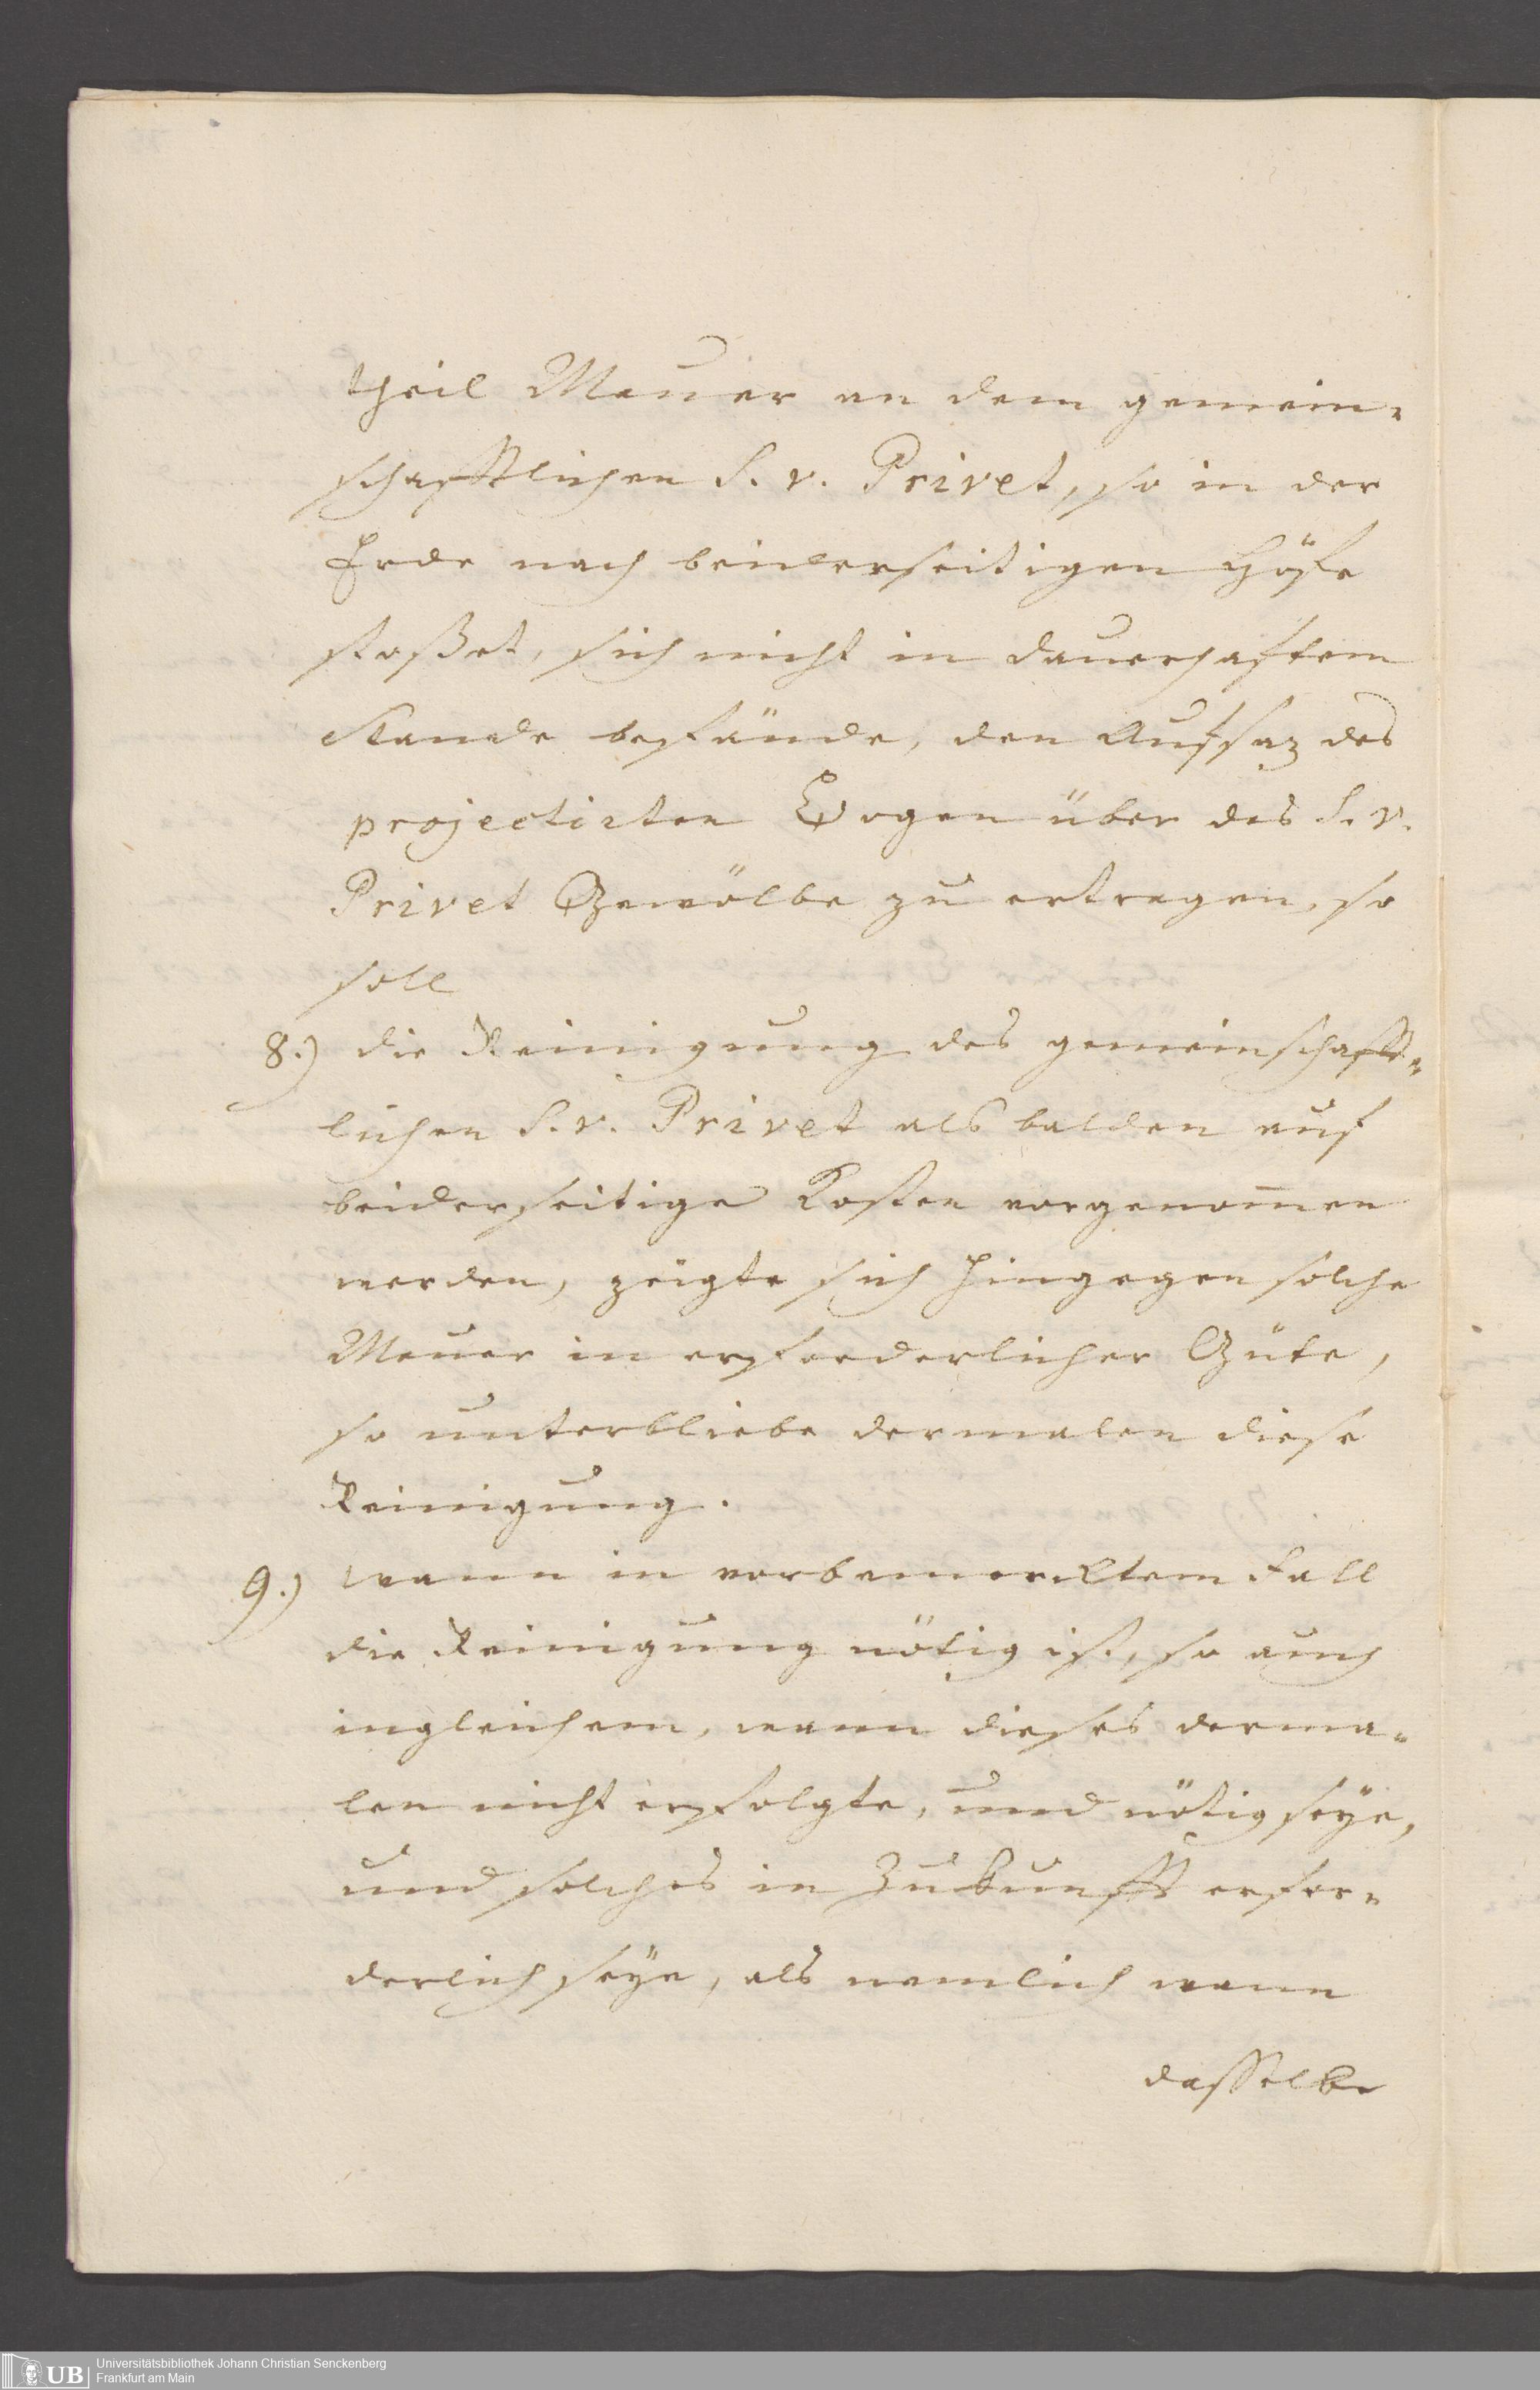 theil Mauer an dem gemein-
schafftlichen S. v. Privet, so in der
Erde nach beiderseitigen Höfe
stoßet, sich nicht in dauerhaftem
Stande befände, den Aufsaz des
projectirten Bogen über des S. v.
Privet Gewölbe zu ertragen, so
soll
8.) die Reinigung des gemeinschafft-
lichen S. v. Privet als balden auf
beiderseitige Kosten vorgenom̅en
werden, zeigte sich hingegen solche
Mauer in erforderlicher Güte,
so unterbliebe dermalen diese
Reinigung.
9.) wann in vorbemercktem Fall
die Reinigung nötig ist, so auch
ingleichem, wann dieses derma-
len nicht erfolgte, und nötig seÿe,
und solches in Zukunfft erfor-
derlich seÿe, als nemlich wann
dasselbe
UB
Universitätsbibliothek Johann Christian Senckenberg
Frankfurt am Main